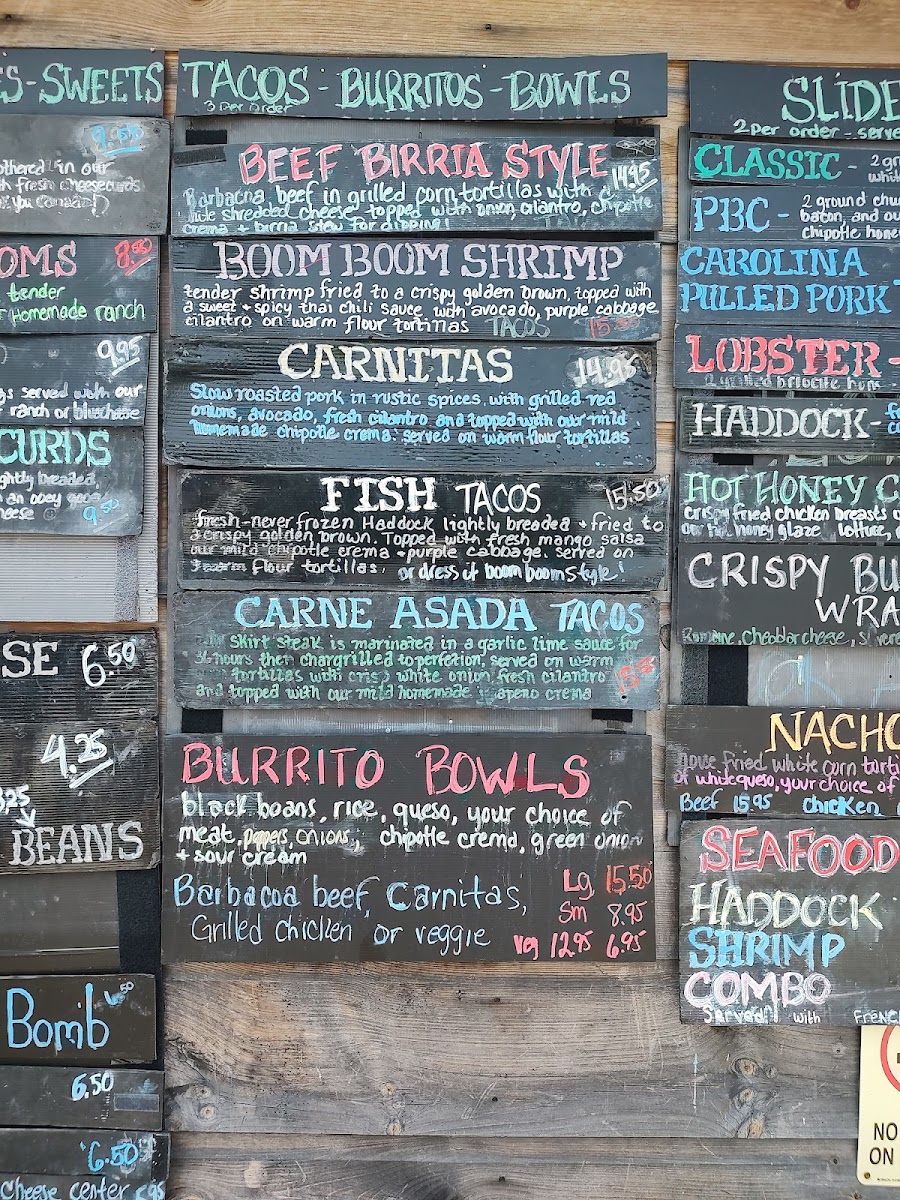 S-SWEETS
9.50
othered in our
h fresh cheesecurds
OMS 8.50
tender
Homemade ranch
9.95
gs served with our
ranch or bluecheese
CURDS
ghtly breaded,
an ooey gooe
cheese 9.50
SE 6.50
4.25
BEANS
Bomb
6.50
6.50
cheese center
TACOS - BURRITOS - BOWLS
3 Per order
BEEF BIRRIA STYLE 14.95
Barbacoa beef in grilled corn tortillas with
shredded cheese, topped with onion, cilantro, chipotle
crema + birria stew for dipping!
BOOM BOOM SHRIMP
tender shrimp fried to a crispy golden brown, topped with
a sweet + spicy thai chili sauce with avocado, purple cabbage,
cilantro on warm flour tortillas TACOS 15.50
CARNITAS 14.95
Slow roasted pork in rustic spices, with grilled red
onions, avocado, fresh cilantro and topped with our mild
homemade chipotle crema. served on warm flour tortillas
FISH TACOS 15.50
fresh-never frozen Haddock lightly breaded + fried to
a crispy golden brown. Topped with fresh mango salsa
our mild chipotle crema + purple cabbage. served on
warm flour tortillas. or dress it boom boom style!
CARNE ASADA TACOS
skirt steak is marinated in a garlic lime sauce for
36 hours then chargrilled to perfetion, served on warm
tortillas with crisp white onion, fresh cilantro
and topped with our mild homemade jalapeno crema
BURRITO BOWLS
black beans, rice, queso, your choice of
meat, peppers, onions, chipotle crema, green onion
+ sour cream
Barbacoa beef, Carnitas,
Grilled chicken or veggie
Lg 15.50
Sm 8.95
Veg 12.95 6.95
SLIDE
2 per order - serve
CLASSIC - 2 gr
PBC - 2 ground chu
bacon, and ou
chipotle hone
CAROLINA
PULLED PORK
LOBSTER -
HADDOCK -
HOT HONEY C
crispy fried chicken breasts
our hot honey glaze lettuce,
CRISPY BU
WRA
Romaine, cheddar cheese,
NACHO
fried white corn torti
of white queso, your choice of
Beef 15.95 chicken
SEAFOOD
HADDOCK
SHRIMP
COMBO
Served with FRENC
NO
ON